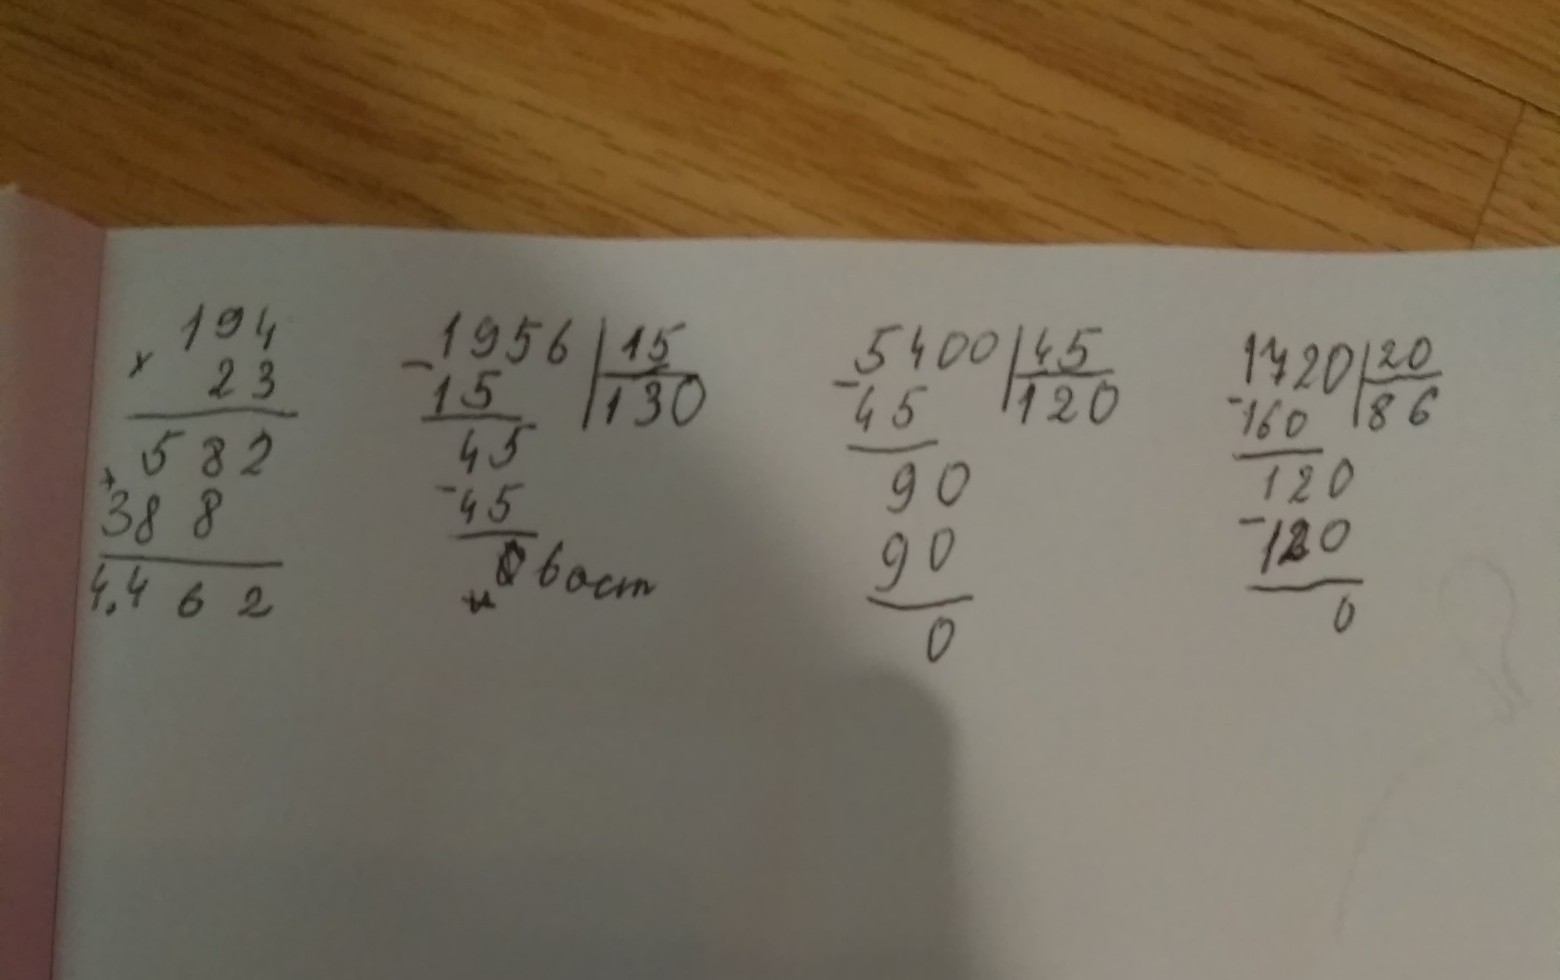 194
× 23
582
+ 388
4.462
- 1956 | 15
15 | 130
45
- 45
0 6 ост
5400 | 45
- 45 | 120
90
90
0
1720 | 20
- 160 | 86
120
- 120
0